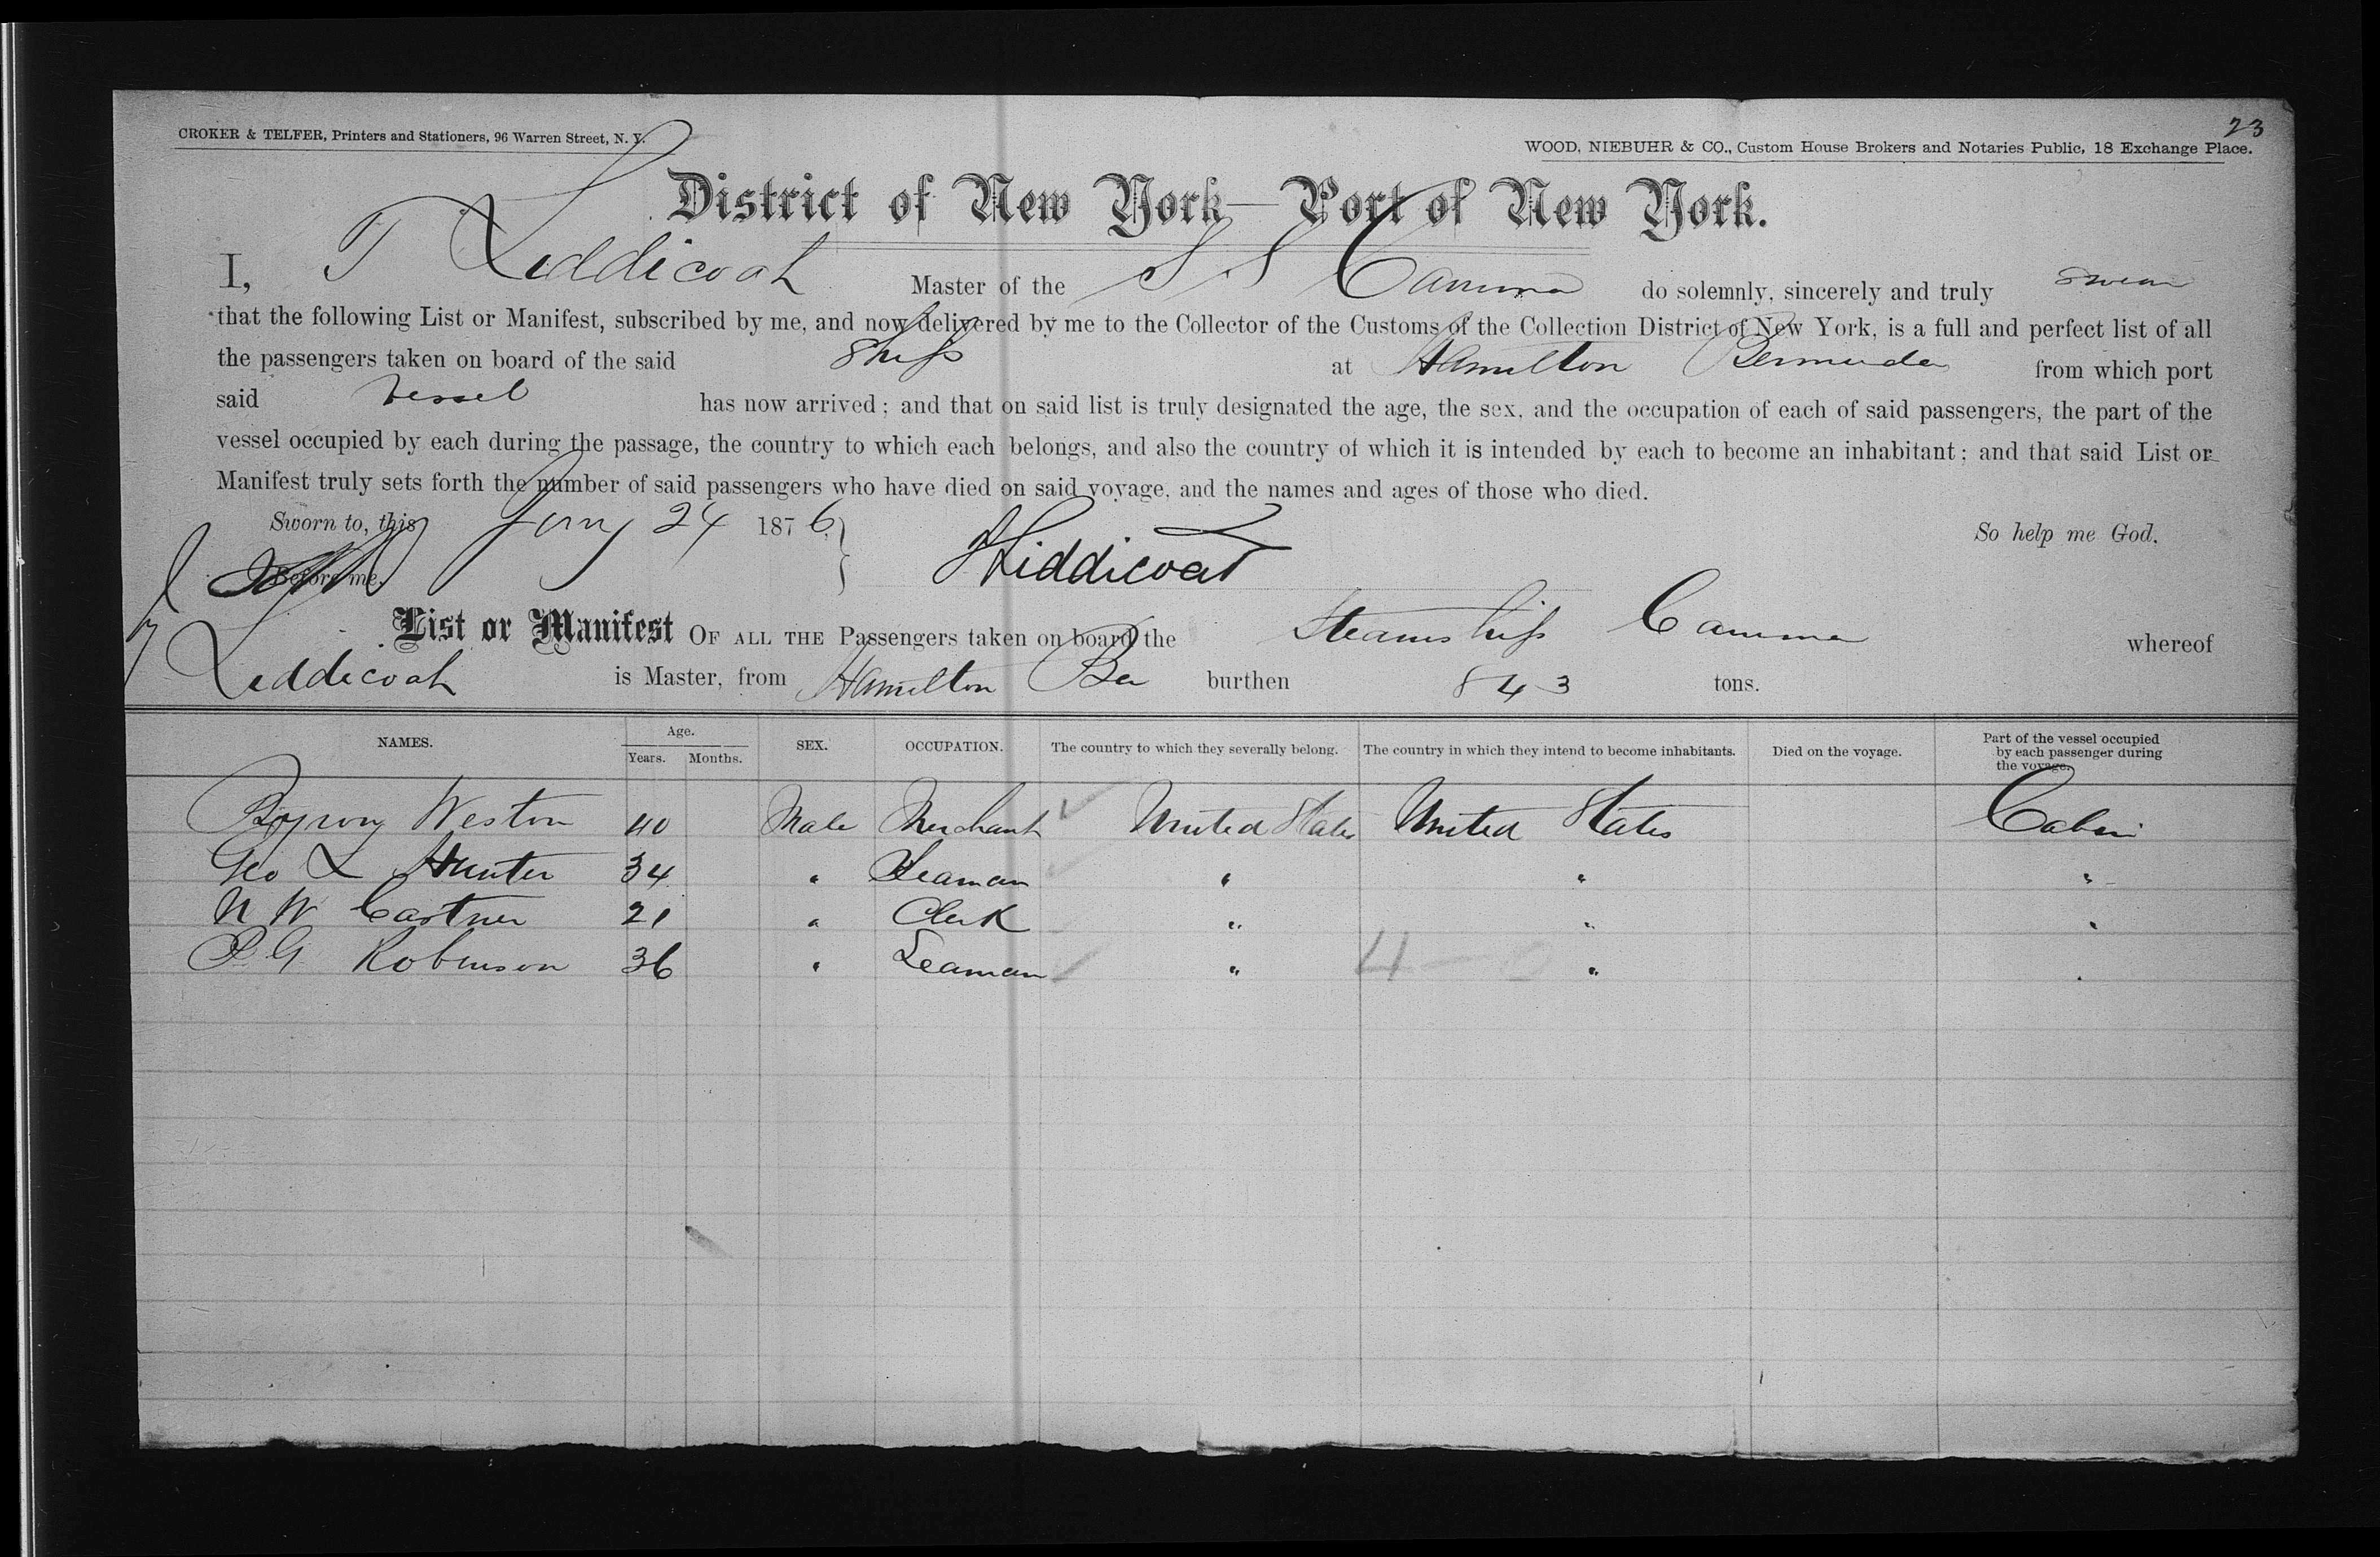 23
CROKER & TELFER, Printers and Stationers, 96 Warren Street, N. Y.
WOOD, NIEBUHR & CO., Custom House Brokers and Notaries Public, 18 Exchange Place.
District of New York—Port of New York.
I, T Liddicoat Master of the S S Camma do solemnly, sincerely and truly swear
that the following List or Manifest, subscribed by me, and now delivered by me to the Collector of the Customs of the Collection District of New York, is a full and perfect list of all
the passengers taken on board of the said Ship at Hamilton Bermuda from which port
said Vessel has now arrived; and that on said list is truly designated the age, the sex, and the occupation of each of said passengers, the part of the
vessel occupied by each during the passage, the country to which each belongs, and also the country of which it is intended by each to become an inhabitant; and that said List or
Manifest truly sets forth the number of said passengers who have died on said voyage, and the names and ages of those who died.
Sworn to, this Jany 24 1876 So help me God.
Before me, Liddicoat
List or Manifest OF ALL THE Passengers taken on board the Steamship Camma whereof
Liddicoat is Master, from Hamilton Ber burthen 843 tons.
NAMES. Age. Years. Months. SEX. OCCUPATION. The country to which they severally belong. The country in which they intend to become inhabitants. Died on the voyage. Part of the vessel occupied by each passenger during the voyage.
Byron Weston 40 Male Merchant United States United States Cabin
Geo L Hunter 34 " Seaman " " "
N W Castner 21 " Clerk " " "
P G Robinson 36 " Seaman " " "
4